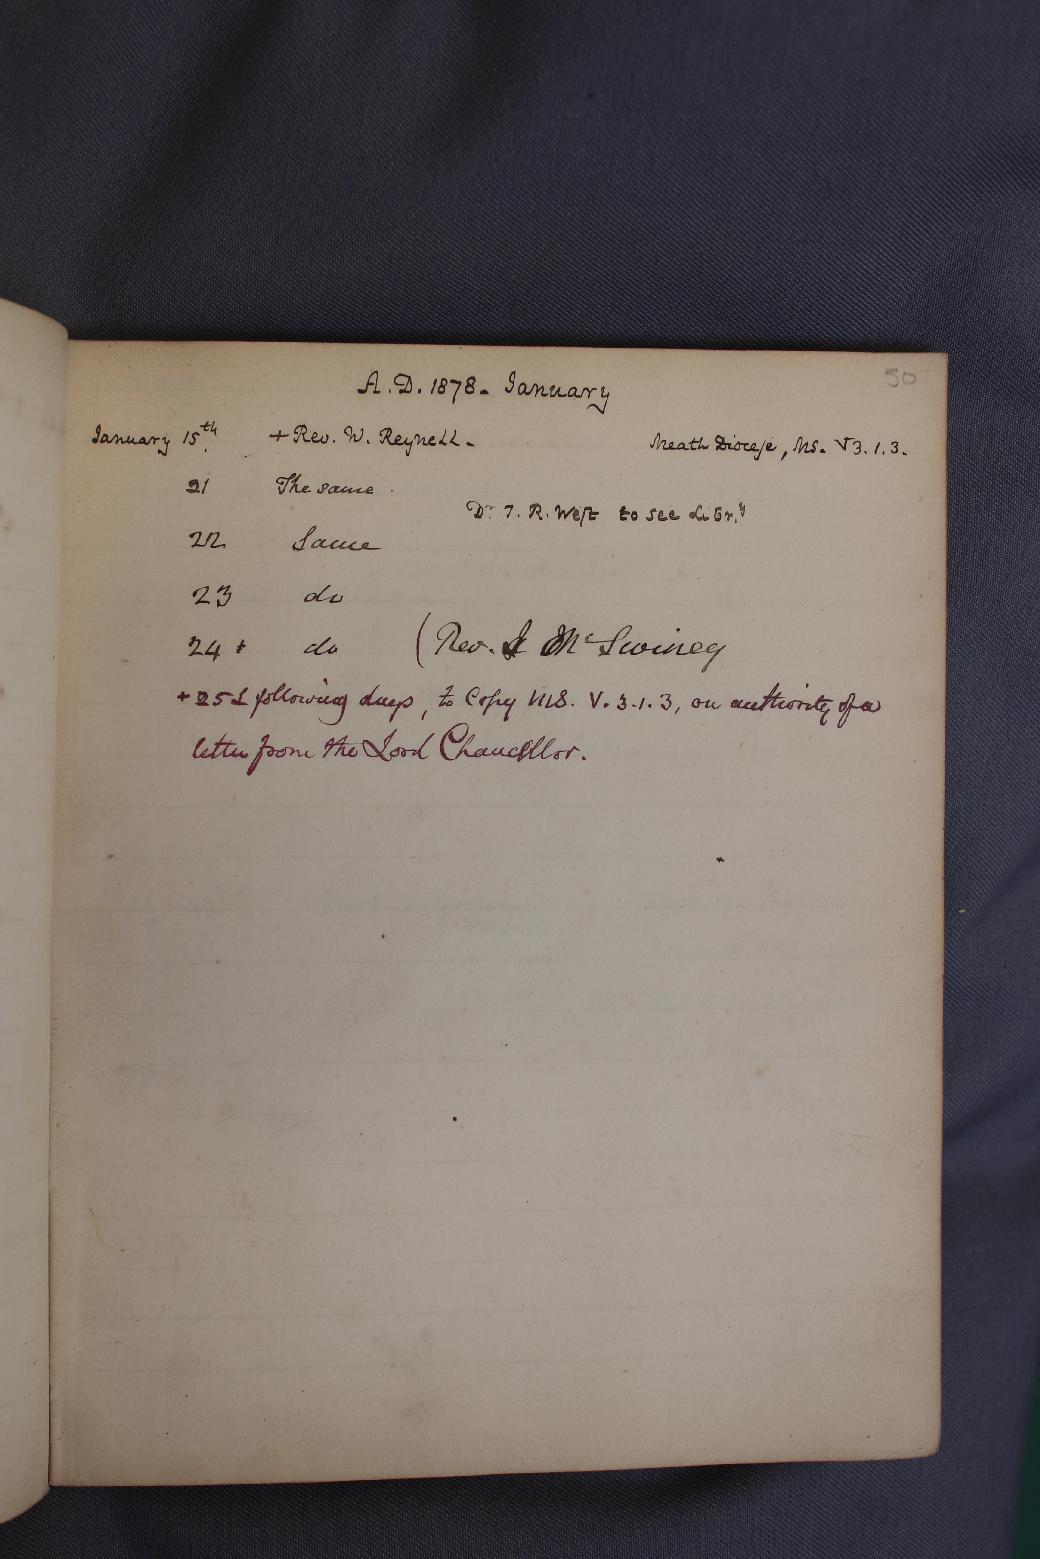 50
A.D. 1878. January
January 15th. + Rev. W. Reynell. Meath Diocese, MS. V3.1.3.
21 The same.
Dr. T. R. West to see Libr.y
22 Same
23 do
24 + do (Rev. J McSwiney
+ 25 & following days, to copy MS. V.3.1.3, on authority of a
letter from the Lord Chancellor.